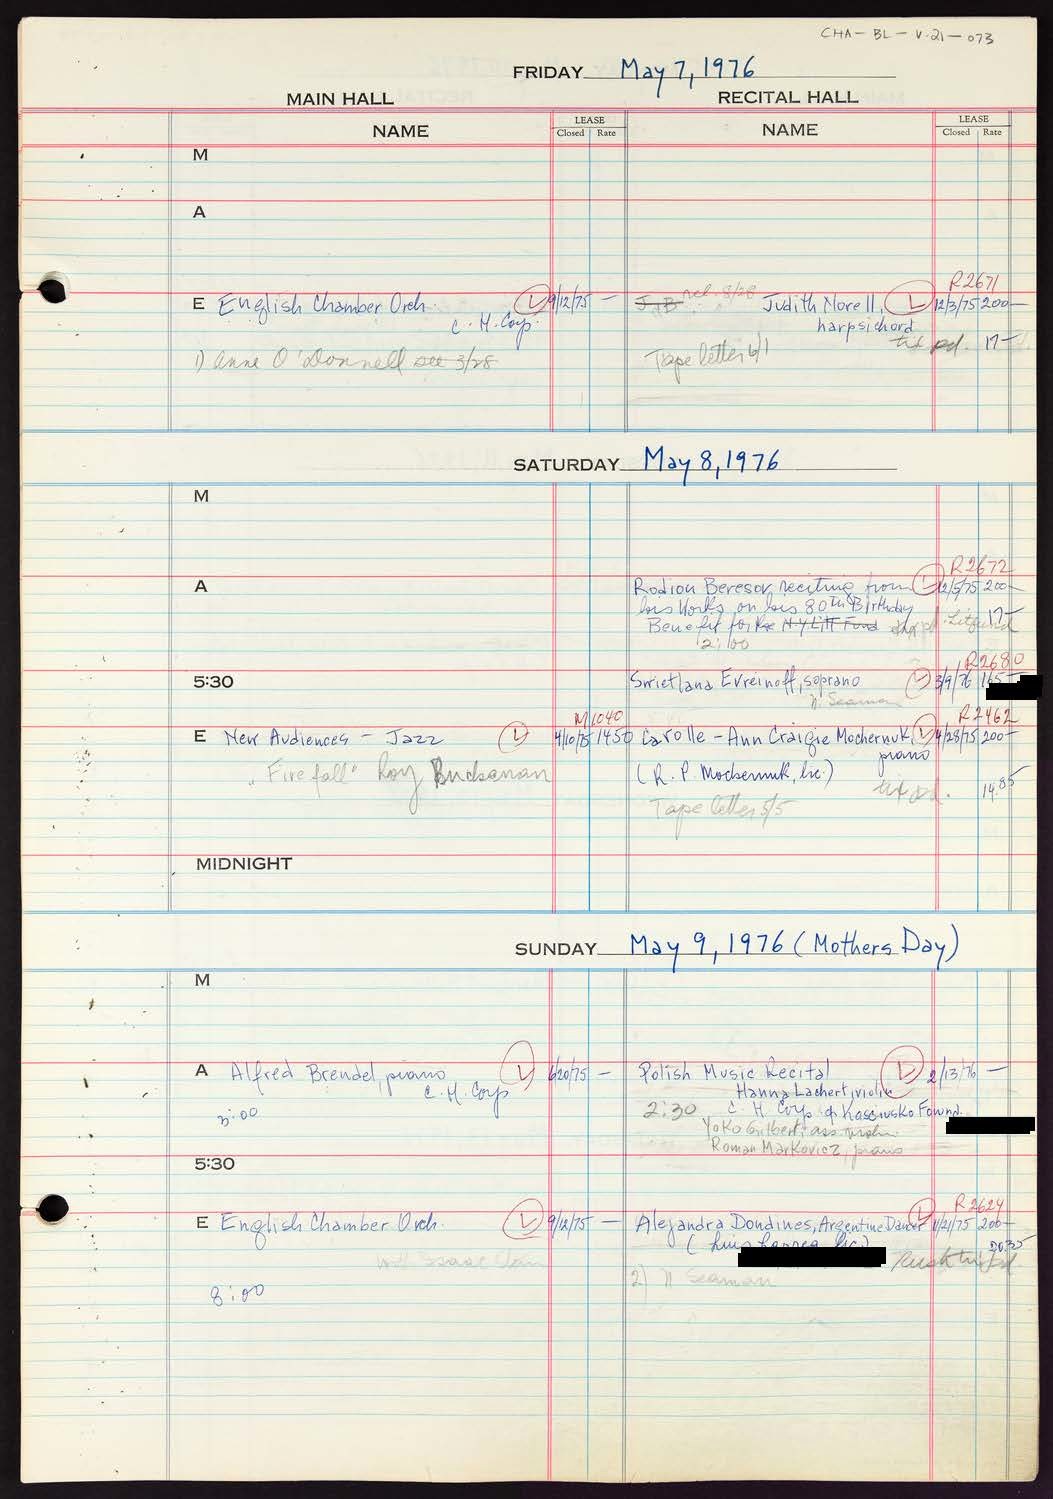 CHA-BL-V.21-073
FRIDAY May 7, 1976
MAIN HALL RECITAL HALL
NAME LEASE Closed Rate NAME LEASE Closed Rate
M
A
R2671
E English Chamber Orch. L 9/12/75 — J.B. rel. 8/28 Judith Norell, L 12/3/75 200—
C. H. Corp. harpsichord
tix pd. 17—
1) Anne O'Donnell see 3/28 Tape letter 6/1
SATURDAY May 8, 1976
M
R2672
A Rodion Beresov reciting from L 12/5/75 200—
his Works on his 80th Birthday
Benefit for the N.Y. Litt Fund Litfund 17—
2:00
R2680
5:30 Swietlana Evreinoff, soprano L 3/9/76 165—
N. Seaman
M1040 R2462
E New Audiences - Jazz L 4/10/75 1450 Carolle-Ann Craigie Mochernuk, L 4/28/75 200—
piano
"Fire fall" Roy Buchanan (R. P. Mochernuk, lic.) tix pd. 14.85
Tape letter 5/5
MIDNIGHT
SUNDAY May 9, 1976 (Mothers Day)
M
A Alfred Brendel, piano L 6/20/75 — Polish Music Recital L 2/13/76 —
C. H. Corp Hanna Lachert, violin
3:00 2:30 C. H. Corp & Kasciusko Found.
Yoko Gilbert, ass. violin
Roman Markovicz, piano
5:30
R2624
E English Chamber Orch. L 9/12/75 — Alejandra Dondines, Argentine Dancer L 11/21/75 200—
(Luis lic.) 20.35
with Isaac tix pd.
8:00 2) N Seaman